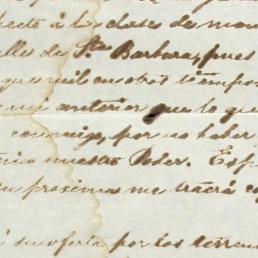 pecto á la clase de mon
lle de Sta Barbara, pues
que mil en otros tiempos
mi anterior que lo que
conmigo, por no haber
nuestro Poder. Esp
proxima me traerá
su oferta por los terren